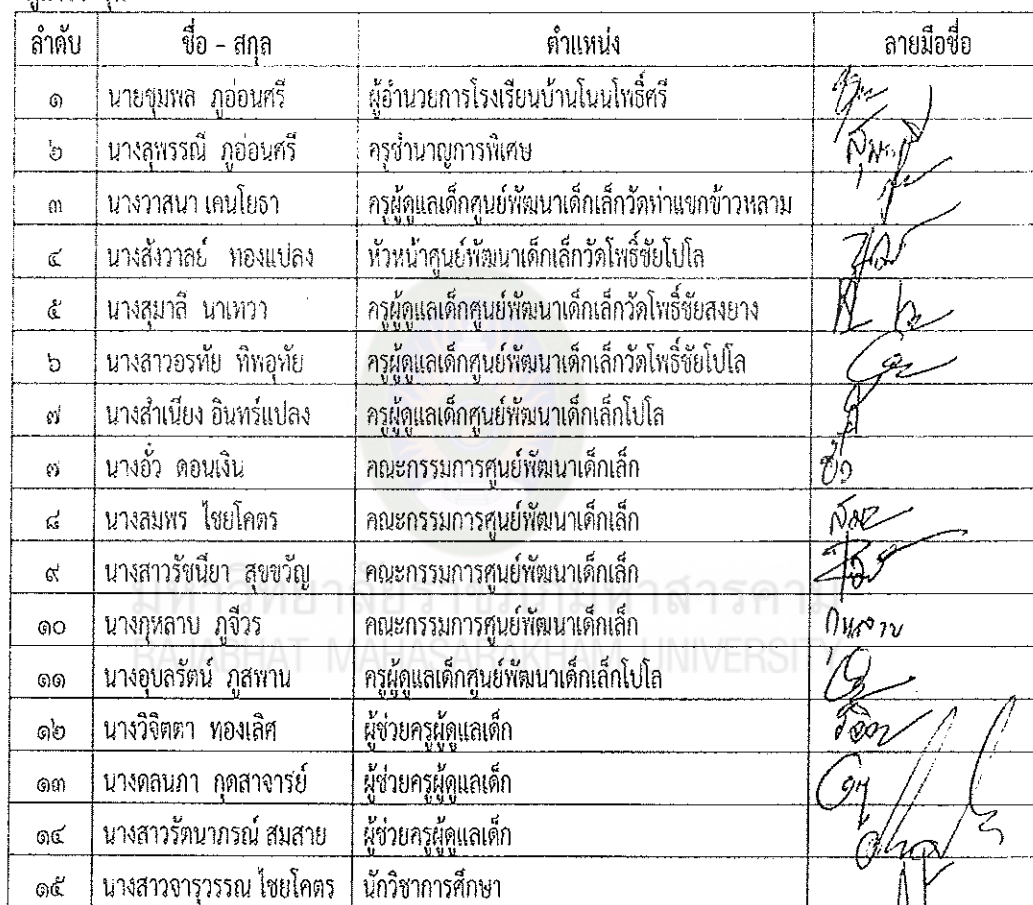 ลำดับ ชื่อ - สกุล ตำแหน่ง ลายมือชื่อ
๑ นายชุมพล ภูอ่อนศรี ผู้อำนวยการโรงเรียนบ้านโนนโพธิ์ศรี
๒ นางสุพรรณี ภูอ่อนศรี ครูชำนาญการพิเศษ
๓ นางวาสนา เคนโยธา ครูผู้ดูแลเด็กศูนย์พัฒนาเด็กเล็กวัดท่าแขกข้าวหลาม
๔ นางสังวาลย์ ทองแปลง หัวหน้าศูนย์พัฒนาเด็กเล็กวัดโพธิ์ชัยโปโล
๕ นางสุมาลี นาเทวา ครูผู้ดูแลเด็กศูนย์พัฒนาเด็กเล็กวัดโพธิ์ชัยสงยาง
๖ นางสาวอรทัย ทิพอุทัย ครูผู้ดูแลเด็กศูนย์พัฒนาเด็กเล็กวัดโพธิ์ชัยโปโล
๗ นางสำเนียง อินทร์แปลง ครูผู้ดูแลเด็กศูนย์พัฒนาเด็กเล็กโปโล
๗ นางอั๋ว ดอนเงิน คณะกรรมการศูนย์พัฒนาเด็กเล็ก
๘ นางสมพร ไชยโคตร คณะกรรมการศูนย์พัฒนาเด็กเล็ก
๙ นางสาวรัชนียา สุขขวัญ คณะกรรมการศูนย์พัฒนาเด็กเล็ก
มหาวิทยาลัยราชภัฏมหาสารคาม
๑๐ นางกุหลาบ ภูจีวร คณะกรรมการศูนย์พัฒนาเด็กเล็ก กุหลาบ
RAJABHAT MAHASARAKHAM UNIVERSITY
๑๑ นางอุบลรัตน์ ภูสพาน ครูผู้ดูแลเด็กศูนย์พัฒนาเด็กเล็กโปโล
๑๒ นางวิจิตตา ทองเลิศ ผู้ช่วยครูผู้ดูแลเด็ก
๑๓ นางดลนภา กุดสาจารย์ ผู้ช่วยครูผู้ดูแลเด็ก
๑๔ นางสาวรัตนาภรณ์ สมสาย ผู้ช่วยครูผู้ดูแลเด็ก
๑๕ นางสาวจารุวรรณ ไชยโคตร นักวิชาการศึกษา